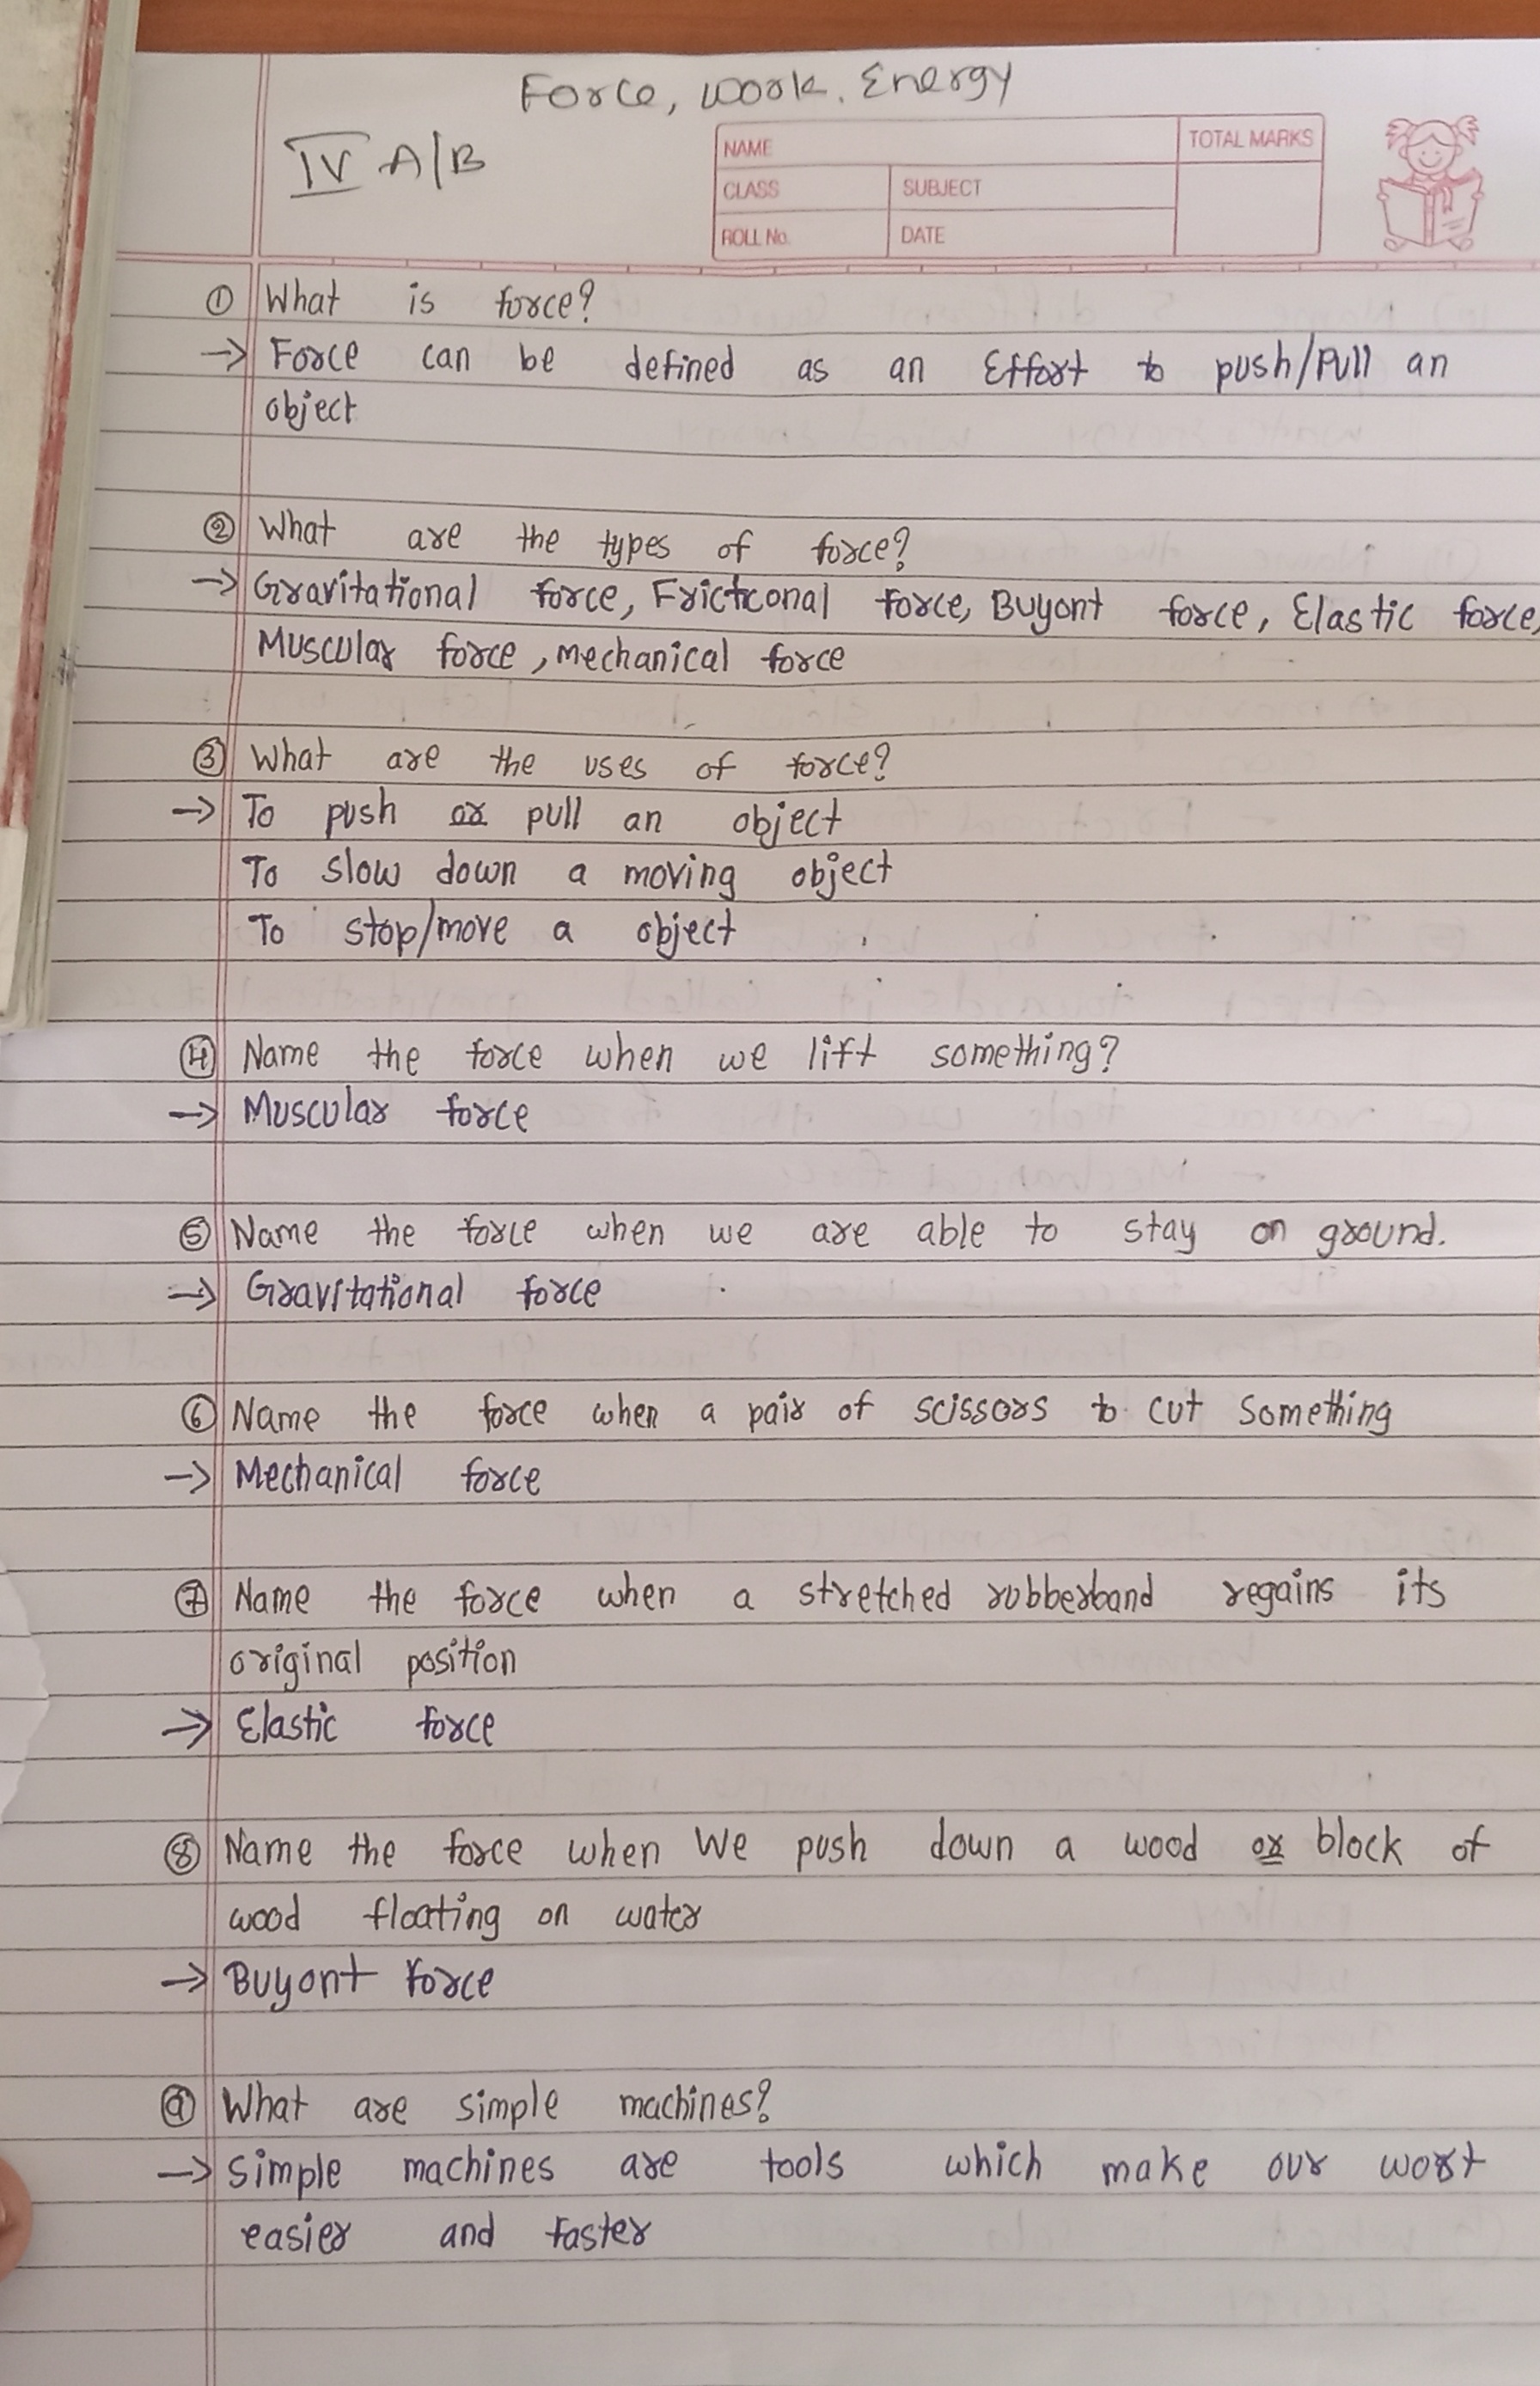 Force, work, Energy
IV A/B
NAME
TOTAL MARKS
CLASS
SUBJECT
ROLL No.
DATE
① What is force?
→ Force can be defined as an Effort to push/Pull an
object
② What are the types of force?
→ Gravitational force, Frictconal force, Buyont force, Elastic force,
Muscular force, mechanical force
③ What are the uses of force?
→ To push or pull an object
To slow down a moving object
To stop/move a object
④ Name the force when we lift something?
→ Muscular force
⑤ Name the force when we are able to stay on ground.
→ Gravitational force
⑥ Name the force when a pair of scissors to cut something
→ Mechanical force
⑦ Name the force when a stretched rubberband regains its
original position
→ Elastic force
⑧ Name the force when We push down a wood or block of
wood floating on water
→ Buyont force
⑨ What are simple machines?
→ simple machines are tools which make our wort
easier and faster